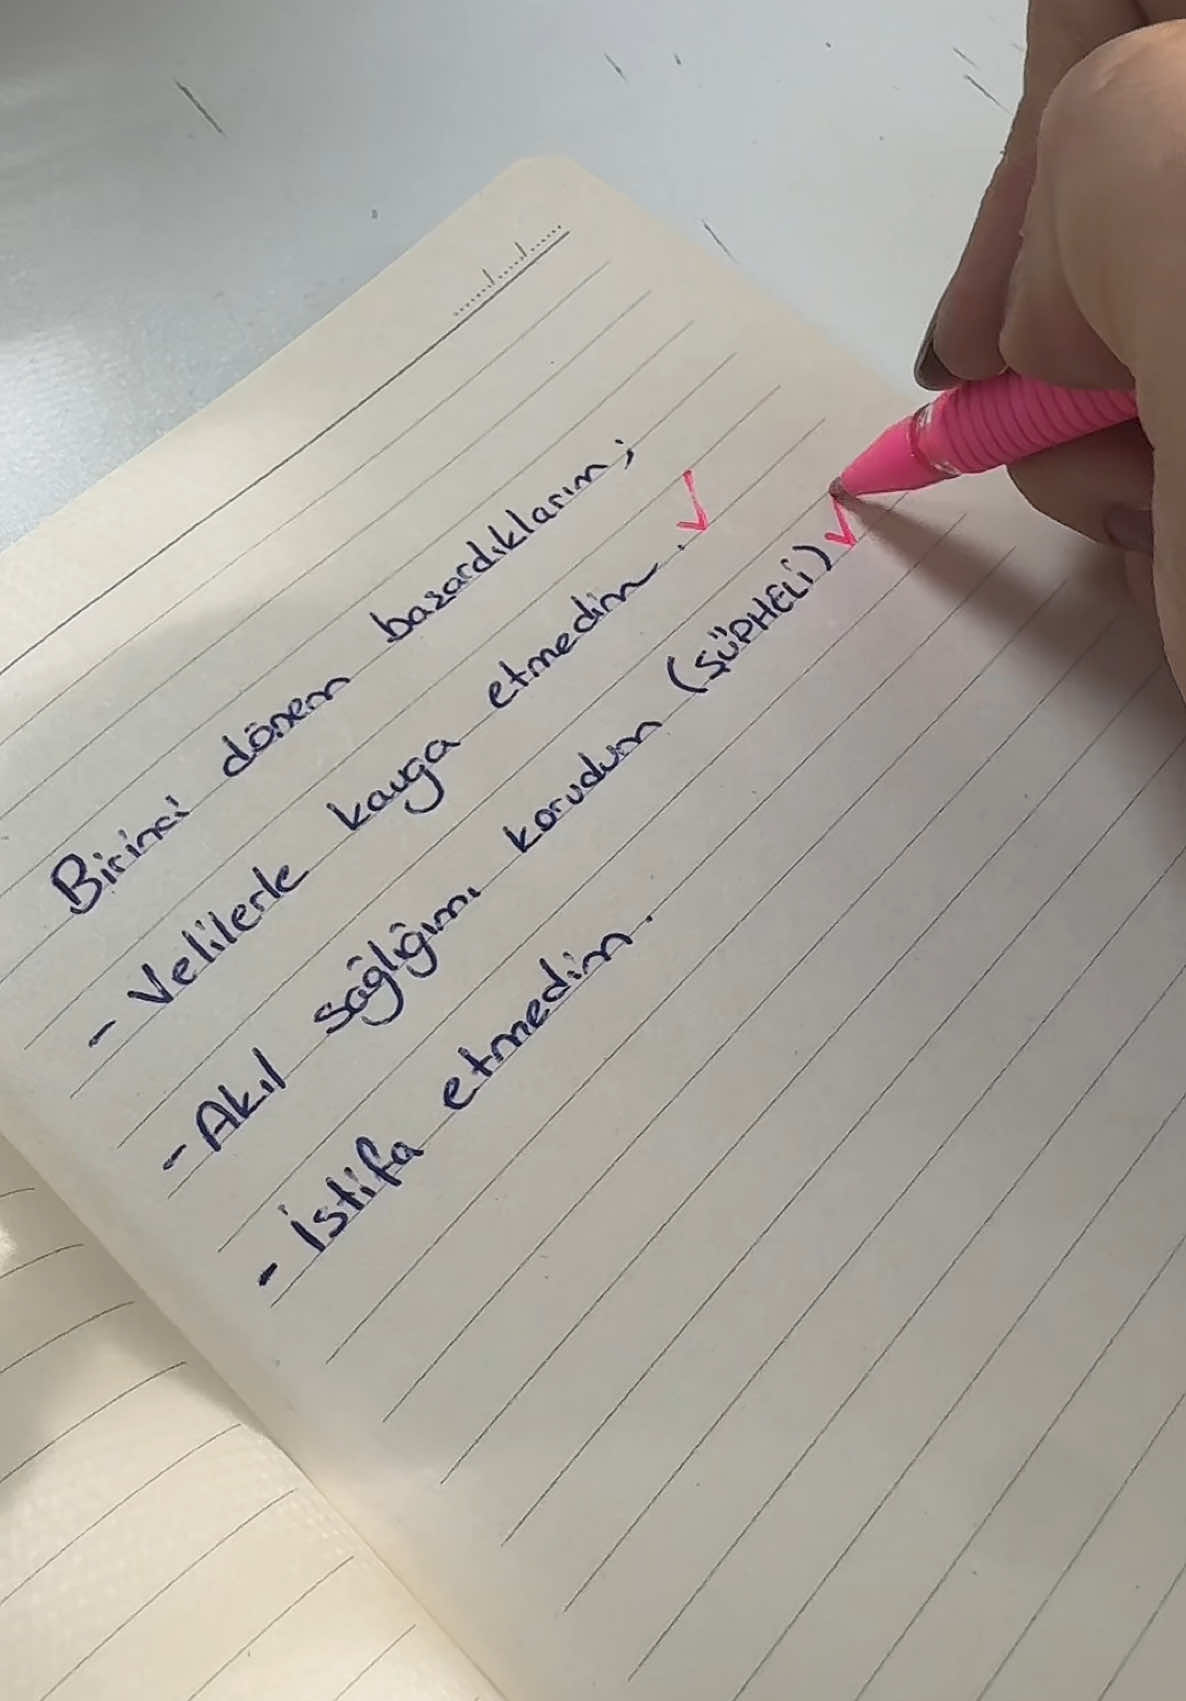 Birinci dönem başardıklarım;
- Velilerle kavga etmedim. ✓
- Akıl sağlığımı korudum (ŞÜPHELİ) ✓
- İstifa etmedim.